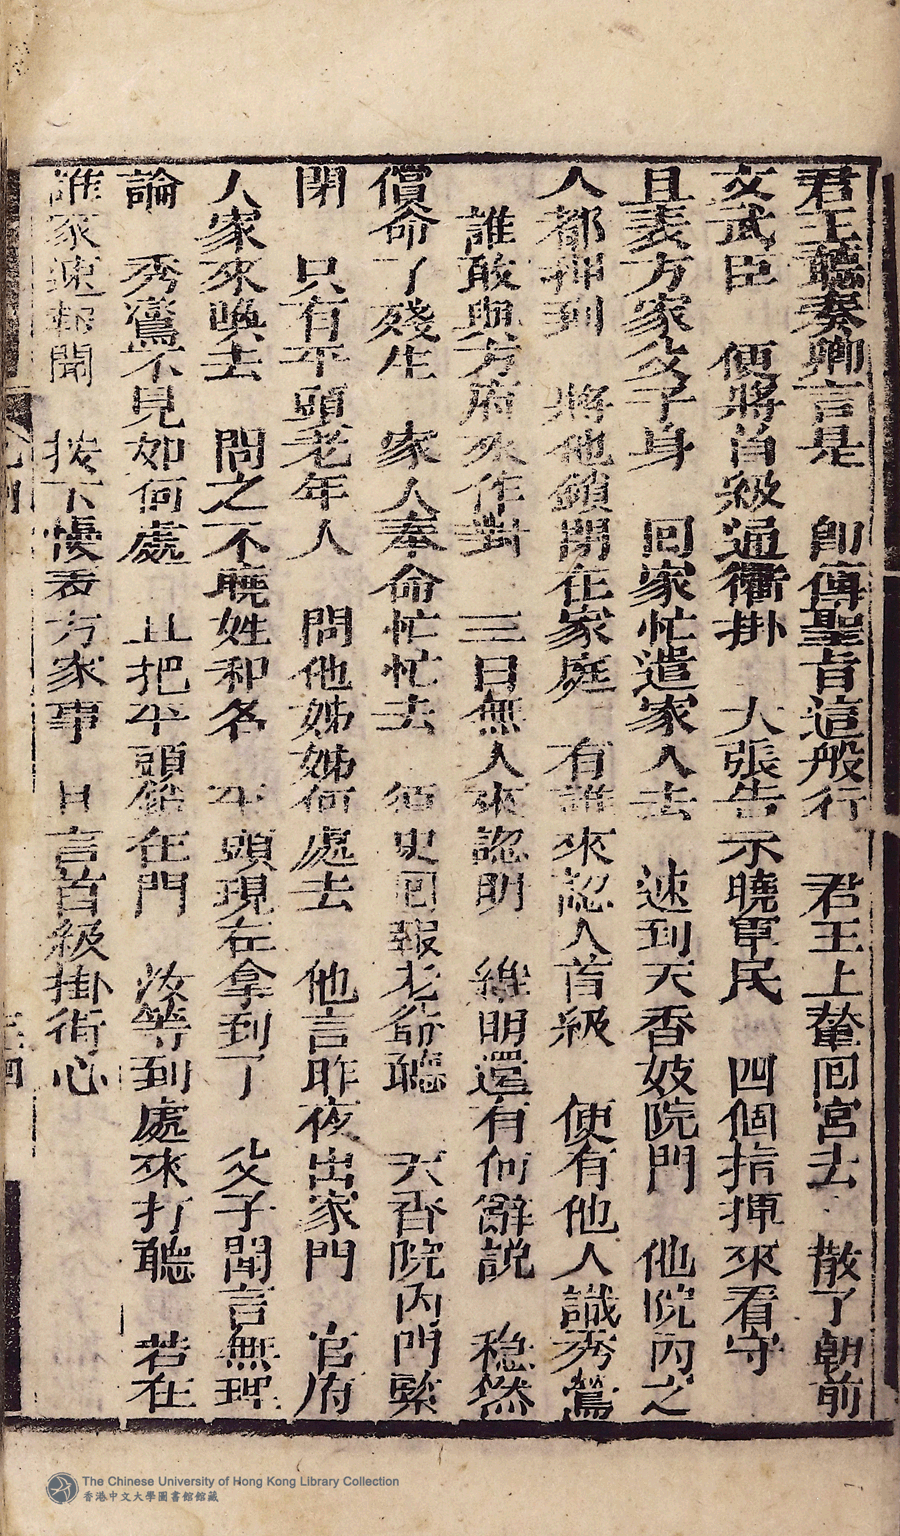 君王聽奏卿言是　即傳聖旨這般行　君王上輦回宮去　散了朝前
文武臣　便將首級通衢掛　大張告示曉軍民　四個指揮來看守
且表方家父子身　回家忙遣家人去　速到天香妓院門　他院內之
人都押到　將他鎖閉在家庭　有誰來認人首級　便有他人識秀鸞
誰敢與方府來作對　三日無人來認明　維明還有何辭說　穩然
償命了殘生　家人奉命忙忙去　須臾回報老爺聽　天香院內門緊
閉　只有平頭老年人　問他姊姊何處去　他言昨夜出家門　官府
人家來喚去　問之不曉姓和名　平頭現在拿到了　父子聞言無理
論　秀鸞不見如何處　且把平頭鎖在門　汝等到處來打聽　若在
誰家速報聞　按下慢表方家事　且言首級掛街心
三四
The Chinese University of Hong Kong Library Collection
香港中文大學圖書館館藏